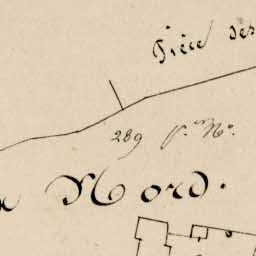 Pièce des
289 P.re No.
Nord.